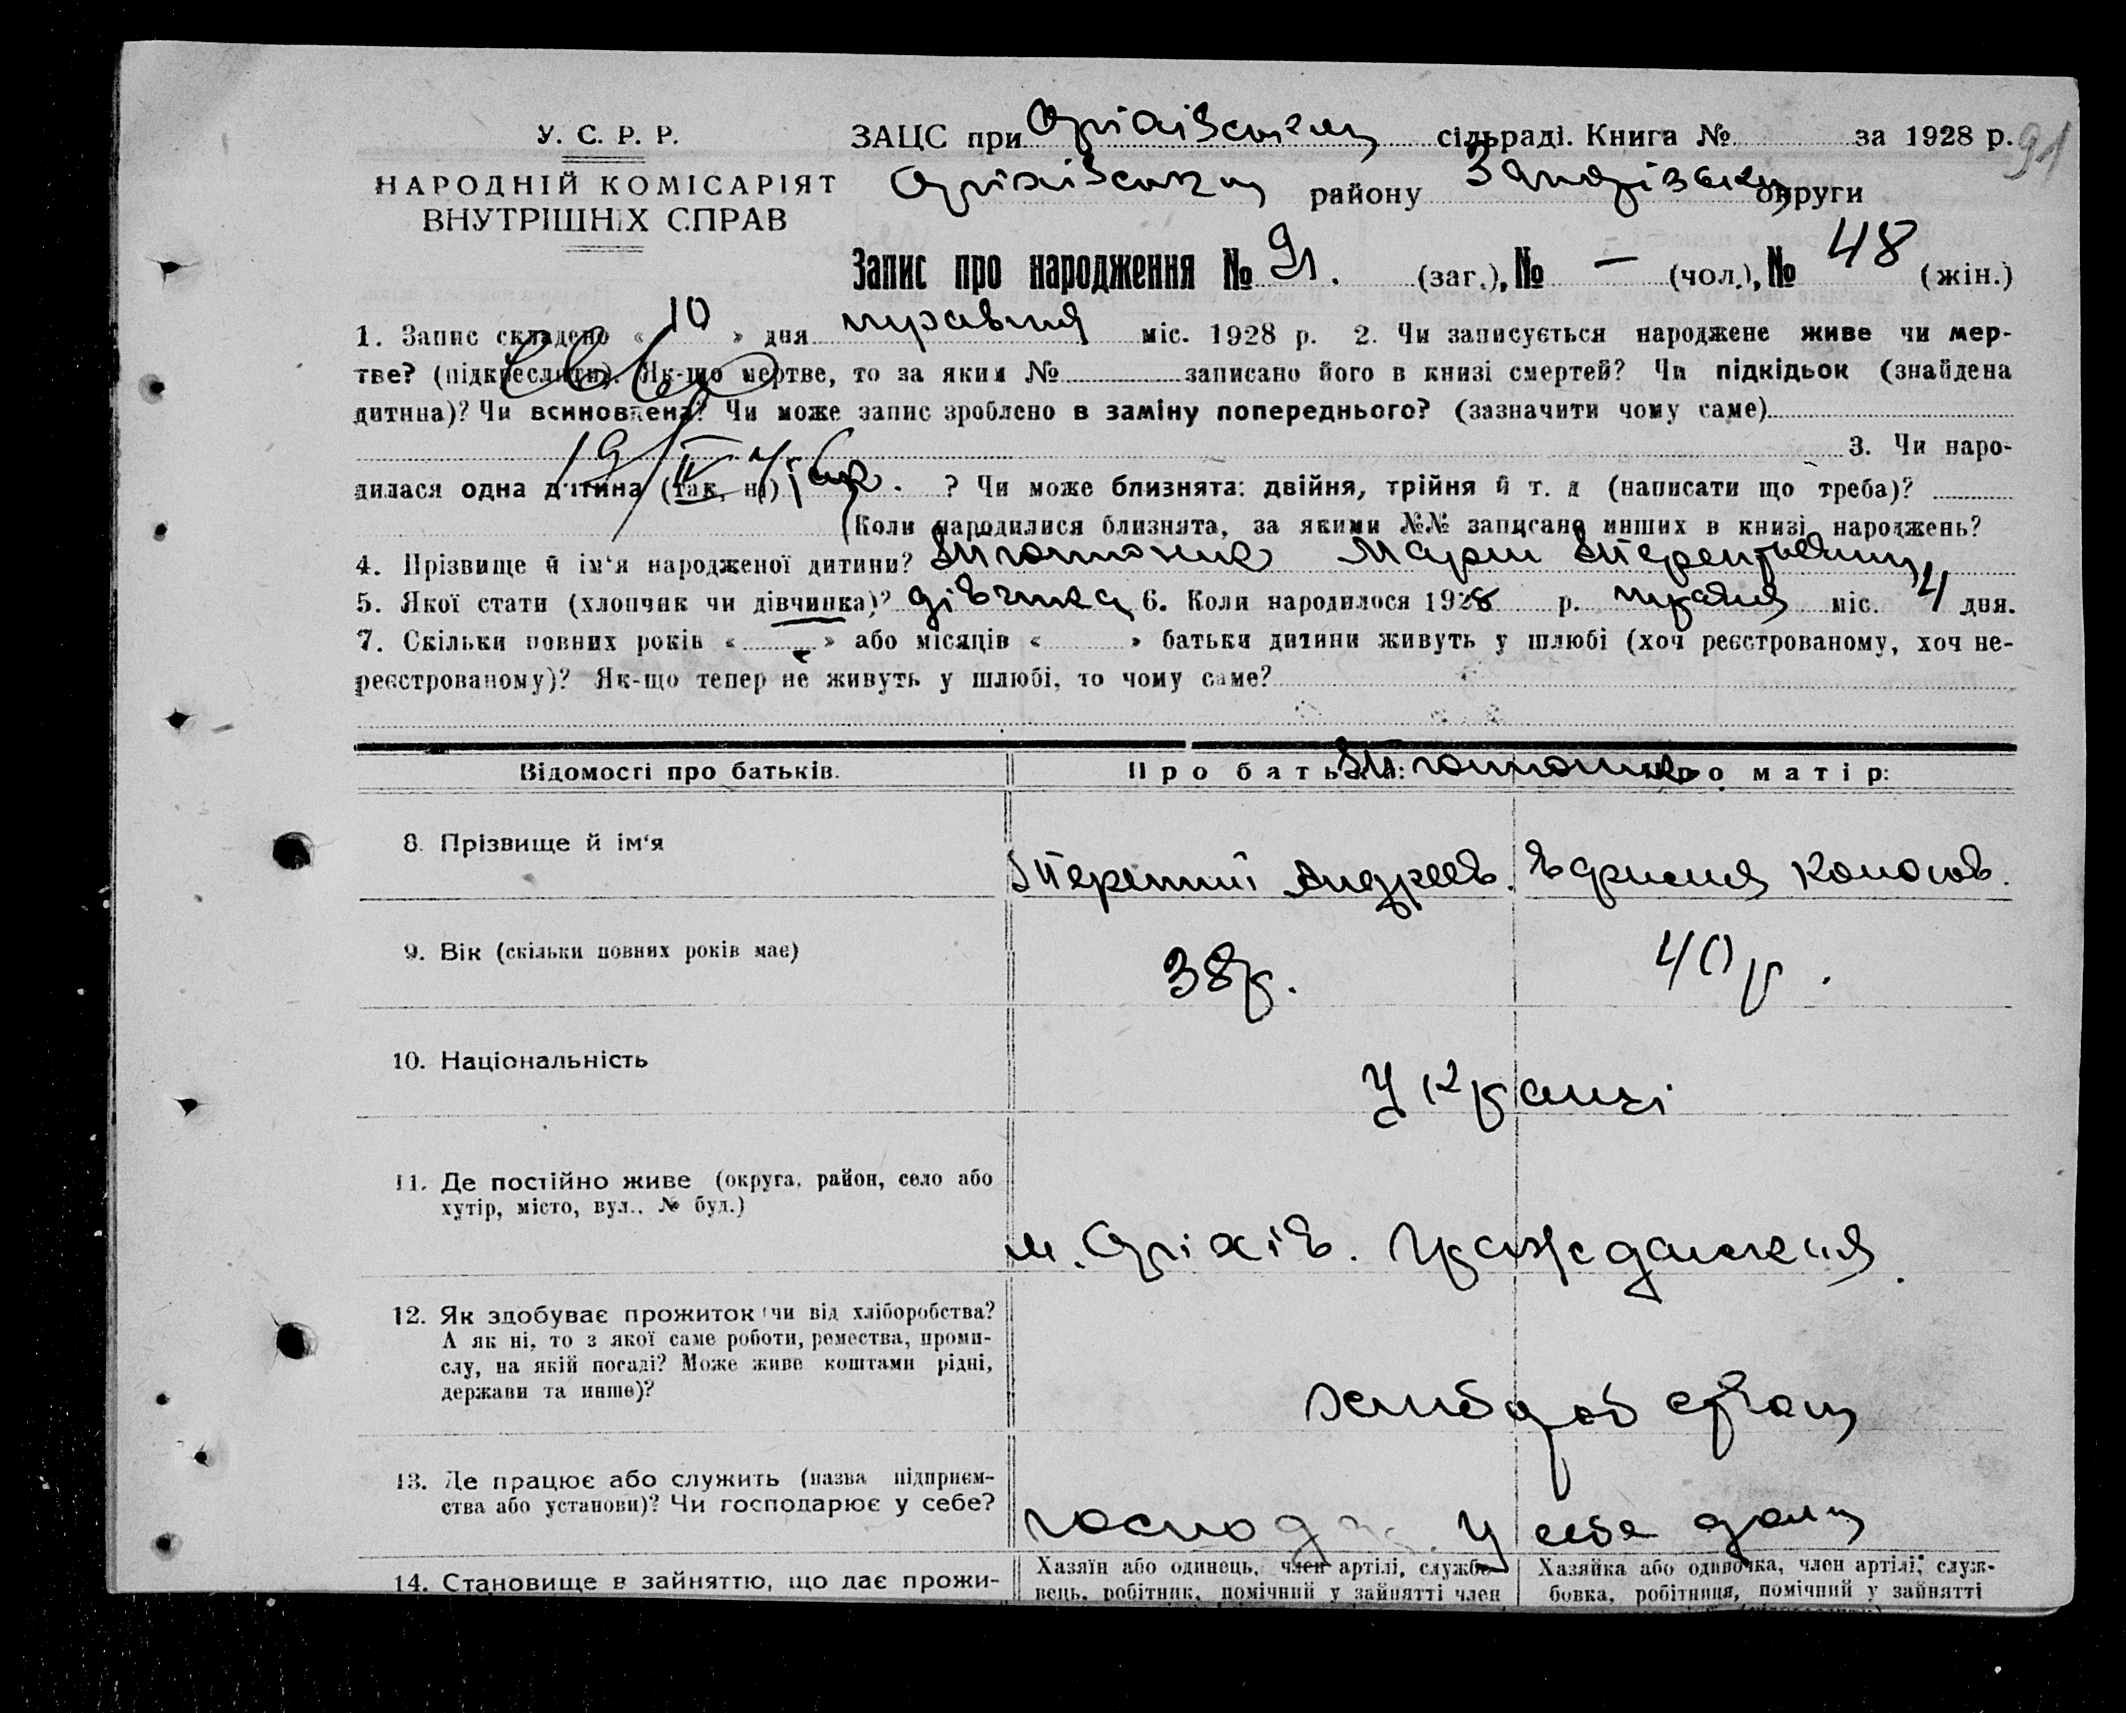 У. С. Р. Р.
НАРОДНІЙ КОМІСАРІЯТ
ВНУТРІШНІХ СПРАВ
ЗАЦС при Оріхівській сільраді. Книга № за 1928 р. 91
Оріхівському району Запорізької округи
Запис про народження № 91. (заг.), № — (чол.), № 48 (жін.)
1. Запис складено « 10 » дня травня міс. 1928 р. 2. Чи записується народжене живе чи мер-
тве? (підкреслити). Як-що мертве, то за яким № записано його в книзі смертей? Чи підкідьок (знайдена
дитина)? Чи всиновлена? Чи може запис зроблено в заміну попереднього? (зазначити чому саме)
3. Чи наро-
дилася одна дитина (так, ні) так. ? Чи може близнята: двійня, трійня й т. д (написати що треба)?
Коли народилися близнята, за якими №№ записано инших в книзі народжень?
4. Прізвище й ім'я народженої дитини? Мария
5. Якої стати (хлопчик чи дівчинка)? дівчинка 6. Коли народилося 1928 р. травня міс. 4 дня.
7. Скільки повних років « » або місяців « » батьки дитини живуть у шлюбі (хоч реєстрованому, хоч не-
реєстрованому)? Як-що тепер не живуть у шлюбі, то чому саме?
Відомості про батьків. Про батька: Про матір:
8. Прізвище й ім'я
Терентий Андреев.
9. Вік (скільки повних років має) 38 р. 40 р.
10. Національність Українці
11. Де постійно живе (округа, район, село або
хутір, місто, вул., № буд.)
м. Оріхів. Гражданская.
12. Як здобуває прожиток чи від хліборобства?
А як ні, то з якої саме роботи, ремества, проми-
слу, на якій посаді? Може живе коштами рідні,
держави та инше)?
13. Де працює або служить (назва підприєм-
ства або установи)? Чи господарює у себе?
у себе дома
14. Становище в зайняттю, що дає прожи-
Хазяїн або одинець, член артілі, службо-
вець, робітник, помічний у зайнятті член
Хазяйка або одиночка, член артілі, служ-
бовка, робітниця, помічний у зайнятті